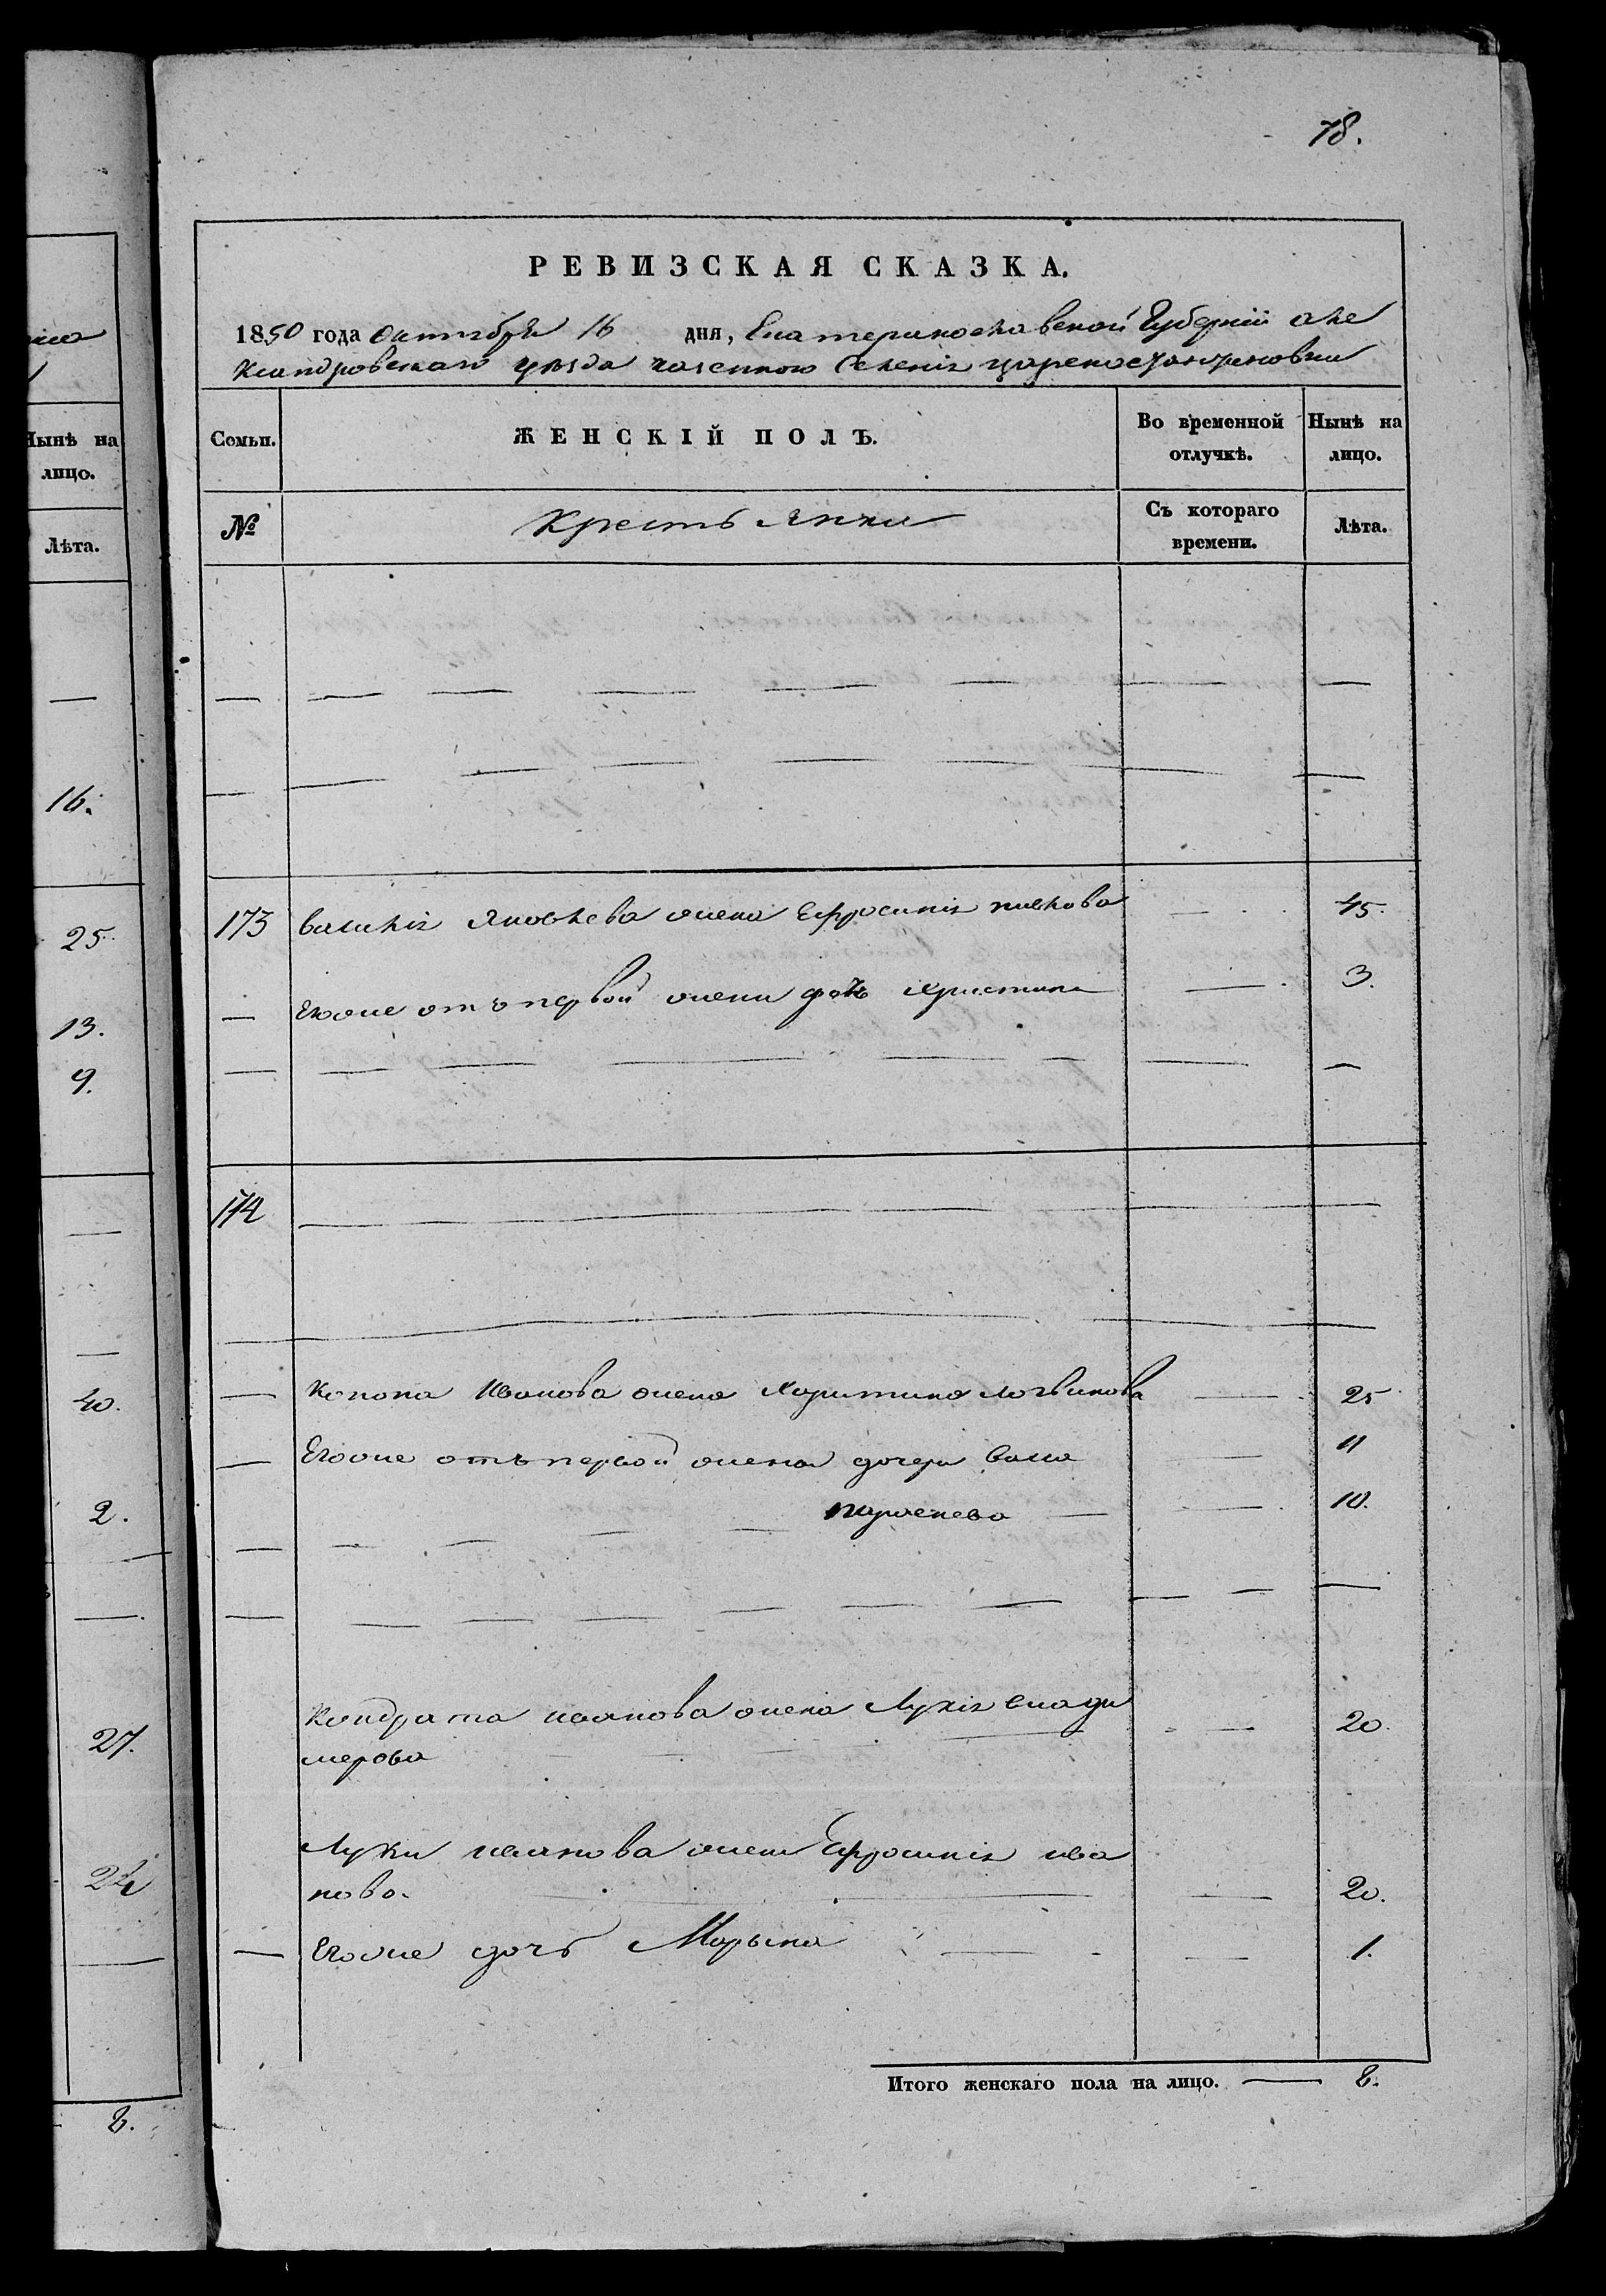 78.
РЕВИЗСКАЯ СКАЗКА.
1850 года Октября 16 дня, Екатеринославской Губернiи але
ксандровскаго уезда казенного Селенiя цареконстантиновки
Семьи. ЖЕНСКІЙ ПОЛЪ. Во временной отлучкѣ. Нынѣ на лицо.
№ Крестьянки Съ котораго времени. Лѣта.
173 василiя Яковлева жена Ефросинiя павлова 45.
Егоже отъ первой жены дочь христина 3.
174
Конона Иванова жена Харитина логвинова 25
Егоже отъ первой жены дочери васса 11
параскева 10.
Кондрата иванова жена Лукiя влади
мерова 20.
Луки иванова жена Ефросинiя ива
нова. 20.
Егоже дочь Марына 1.
Итого женскаго пола на лицо. 8.
Нынѣ на
лицо.
Лѣта.
16.
25.
13.
9.
40.
2.
27.
24
8.